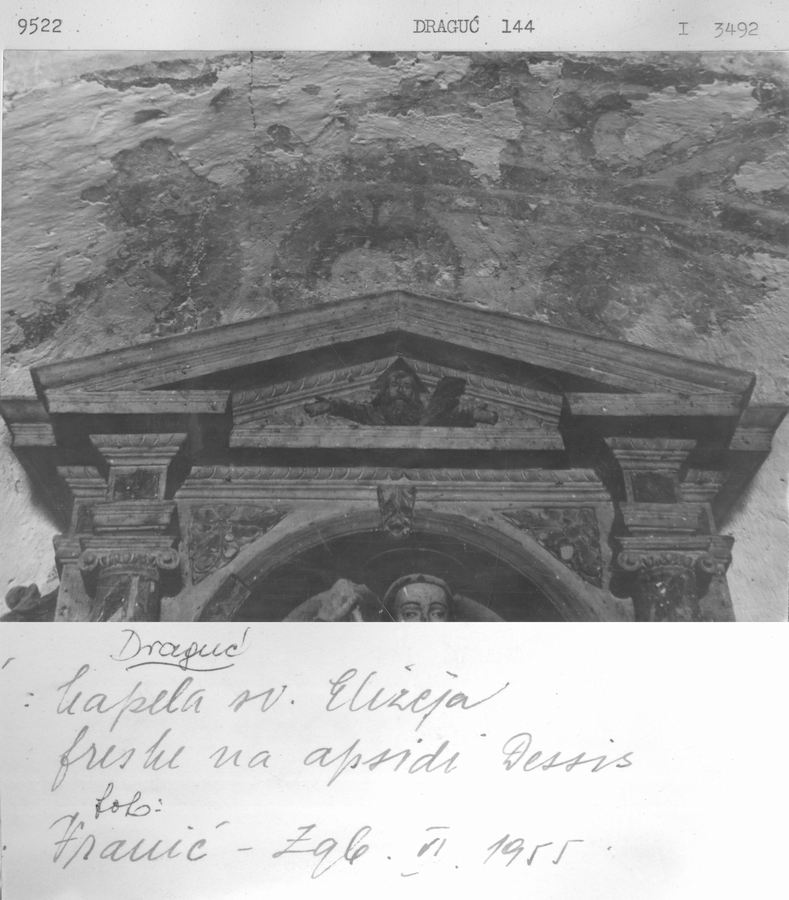 9522 DRAGUĆ 144 I 3492
Draguć
: kapela sv. Elizeja
freske na apsidi Dessis
fot:
Vranić - Zgb. VI. 1955.